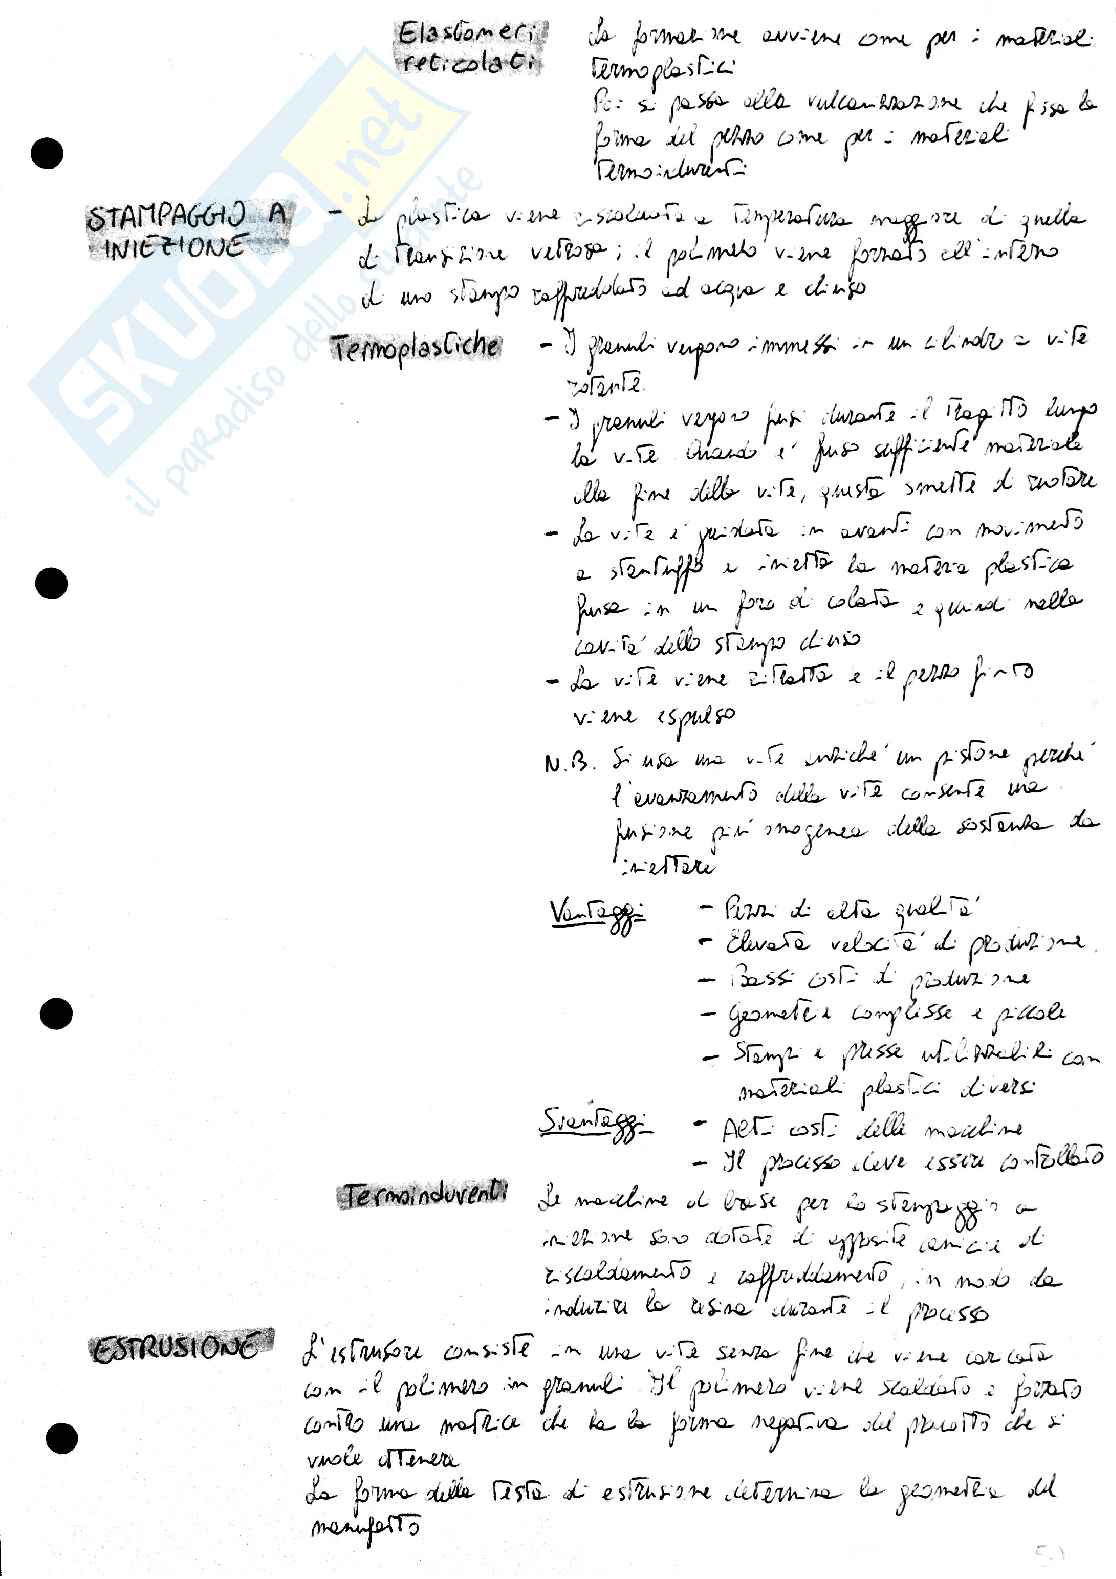 Elastomeri reticolati
La formazione avviene come per i materiali
termoplastici
Poi si passa alla vulcanizzazione che fissa la
forma del pezzo come per i materiali
termoindurenti
STAMPAGGIO A INIEZIONE
- La plastica viene riscaldata a temperatura maggiore di quella
di transizione vetrosa; il polimero viene forzato all'interno
di uno stampo raffreddato ad acqua e chiuso
Termoplastiche
- I granuli vengono immessi in un cilindro a vite
rotante.
- I granuli vengono fusi durante il tragitto lungo
la vite. Quando e' fuso sufficiente materiale
alla fine della vite, questa smette di ruotare
- La vite e' guidata in avanti con movimento
a stantuffo e inietta la materia plastica
fusa in un foro di colata e quindi nella
cavita' dello stampo chiuso
- La vite viene ritratta e il pezzo finito
viene espulso
N.B. Si usa una vite anziche' un pistone perche'
l'avanzamento della vite consente una
fusione piu' omogenea della sostanza da
iniettare
Vantaggi
- Pezzi di alta qualita'
- Elevata velocita' di produzione.
- Bassi costi di produzione
- Geometrie complesse e piccole
- Stampi e presse utilizzabili con
materiali plastici diversi
Svantaggi
- Alti costi delle macchine
- Il processo deve essere controllato
Termoindurenti
Le macchine di base per lo stampaggio a
iniezione sono dotate di apposite camicie di
riscaldamento e raffreddamento, in modo da
indurire la resina durante il processo
ESTRUSIONE
L'estrusore consiste in una vite senza fine che viene caricata
con il polimero in granuli. Il polimero viene scaldato e forzato
contro una matrice che ha la forma negativa del prodotto che si
vuole ottenere
La forma della testa di estrusione determina la geometria del
manufatto
SKUOLA.net
il paradiso dello studente